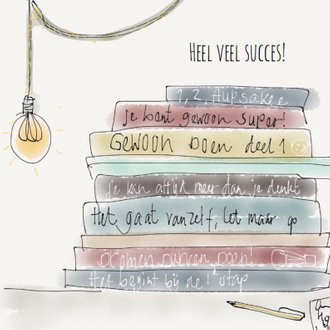 HEEL VEEL SUCCES!
1, 2, Hupsakee
je bent gewoon super!
GEWOON DOEN deel 1
je kan altijd meer dan je denkt
Het gaat vanzelf, let maar op
Dromen, durven, Doen!
Het begint bij de 1e stap